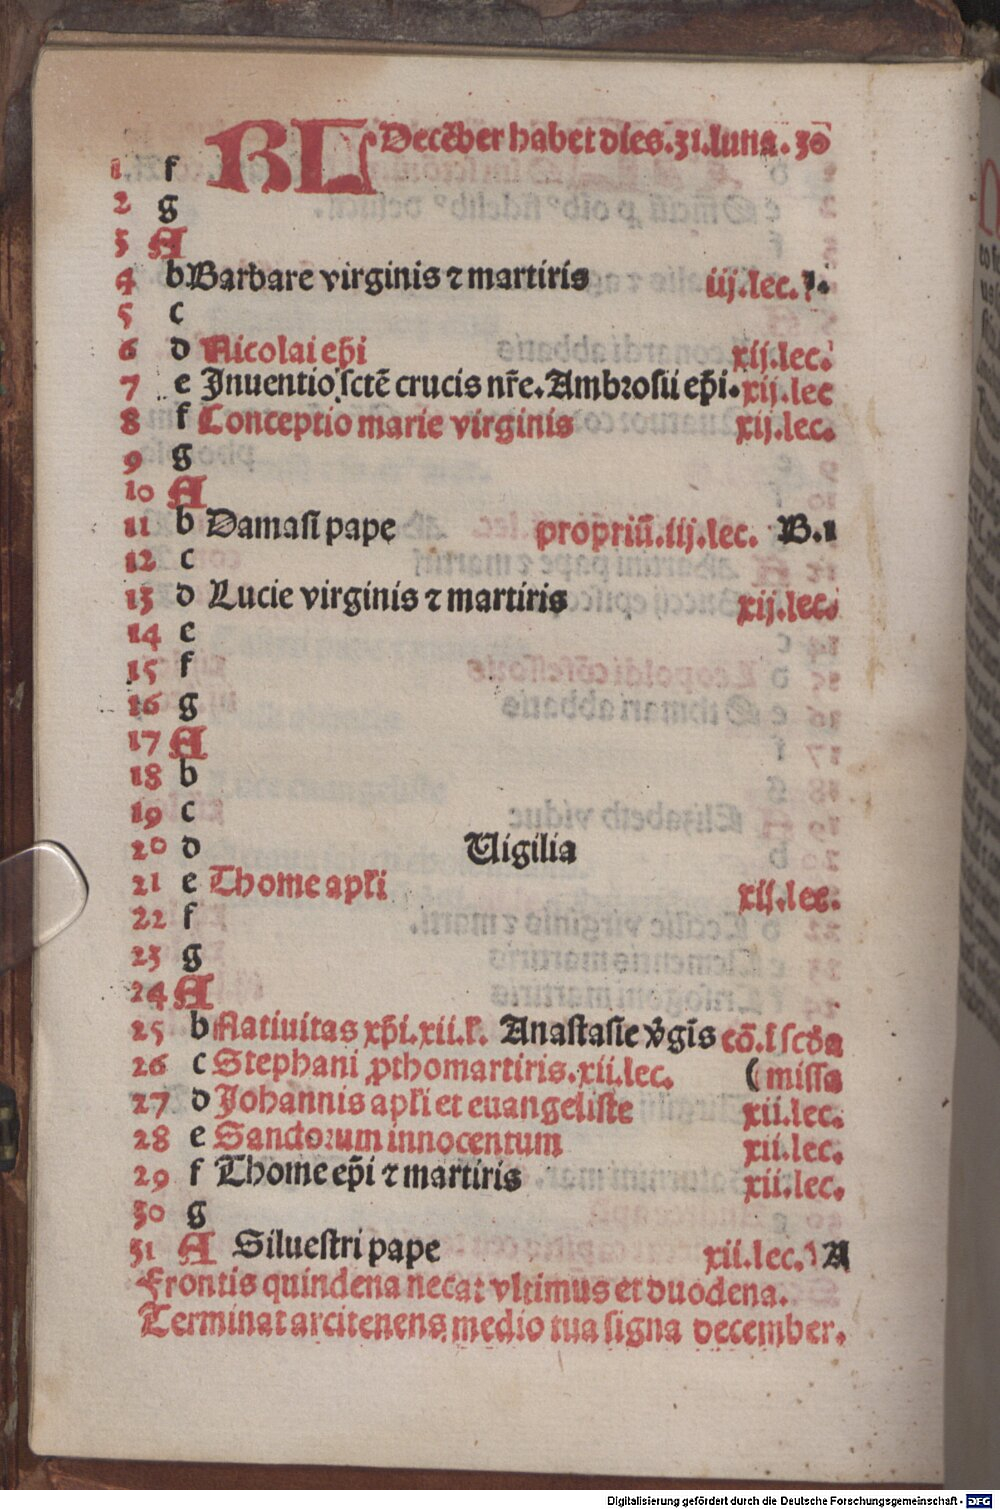 KL Decēber habet dies.31.luna.30
1 f
2 g
3 A
4 b Barbare virginis ⁊ martiris iij.lec.
5 c
6 d Nicolai ep̄i xij.lec.
7 e Inuentio sctē crucis nr̄e. Ambrosii ep̄i. xij.lec
8 f Conceptio marie virginis xij.lec.
9 g
10 A
11 b Damasi pape propriū.iij.lec. B.1
12 c
13 d Lucie virginis ⁊ martiris xij.lec.
14 e
15 f
16 g
17 A
18 b
19 c
20 d Uigilia
21 e Thome apl̄i xij.lec.
22 f
23 g
24 A
25 b Natiuitas xp̄i.xii.l'. Anastasie v̄gīs cō.ī scd̄a
26 c Stephani ꝓthomartiris.xii.lec. ( missa
27 d Johannis apl̄i et euangeliste xii.lec.
28 e Sanctorum innocentum xii.lec.
29 f Thome ep̄i ⁊ martiris xii.lec.
30 g
31 A Siluestri pape xii.lec. A
Frontis quindena necat vltimus et duodena.
Terminat arcitenens medio tua signa december.
Digitalisierung gefördert durch die Deutsche Forschungsgemeinschaft - DFG